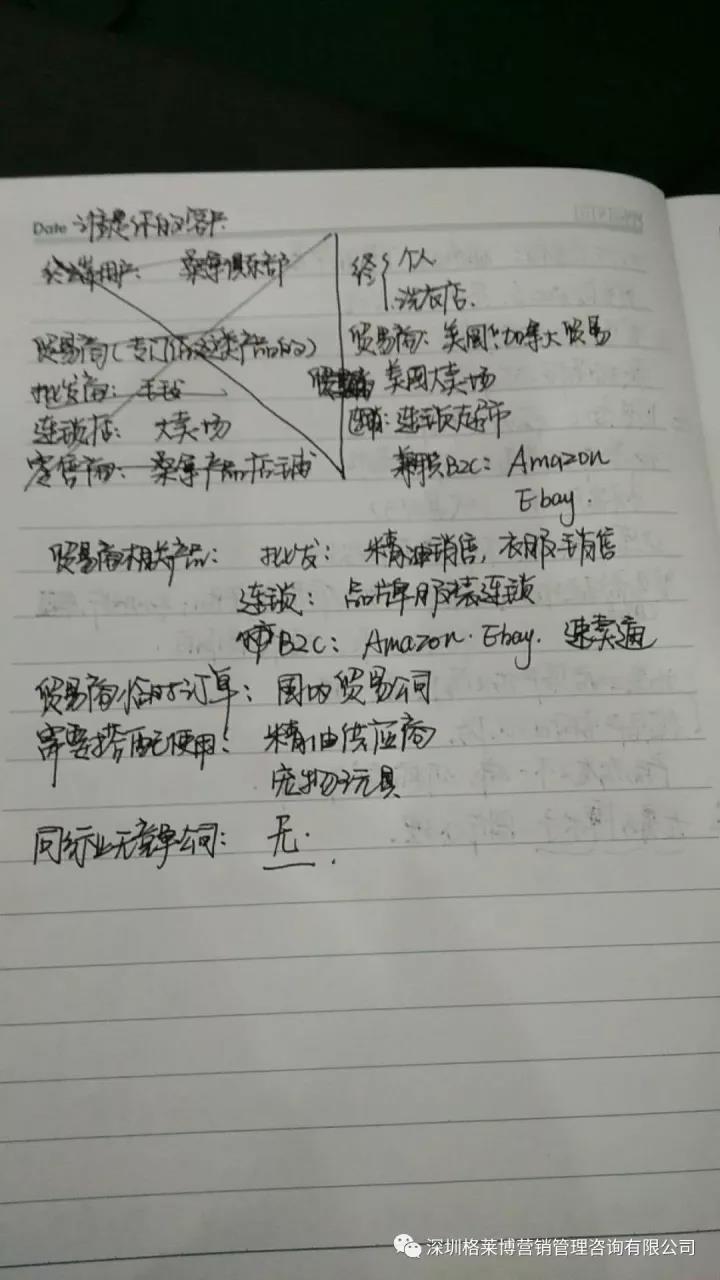 Date 谁是你的客户
终端用户: 桑拿俱乐部
贸易商(专门做这类产品的)
批发商:
连锁店: 大卖场
零售商: 桑拿产品店
终 个人
洗衣店.
贸易商: 美国 加拿大贸易
美国大卖场
连锁: 连锁超市
B2C: Amazon
Ebay.
贸易商相关产品: 批发: 精油销售, 衣服销售
连锁: 品牌服装连锁
B2C: Amazon. Ebay. 速卖通
贸易商临时订单: 国内贸易公司
需要搭配使用: 精油供应商
宠物玩具
同行业无竞争公司: 无.
深圳格莱博营销管理咨询有限公司